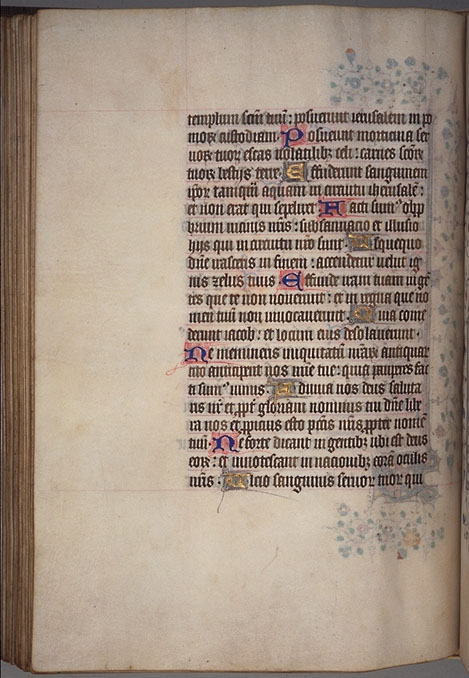 templum scm̄ tuū : posuerunt ierusalem in po
moꝝ custodiam . Posuerunt morticina ser
uoꝝ tuoꝝ escas uolatilibꝫ celi : carnes scōꝝ
tuoꝝ bestijs terre . Effuderunt sanguinem
ipoꝝ tamquā aquam in circuitu iherusalē :
et non erat qui sepeliret . Facti sumꝰ obp
brium uicinis nr̄is : subsannacio et illusio
hijs qui in circuitu nr̄o sunt . Usquequo
dn̄e irasceris in finem : accendetur uelut ig
nis zelus tuus . Effunde iram tuam in gē
tes que te non nouerunt : et in regna que no
men tuū non inuocauerunt . Quia come
derunt iacob : et locum eius desolauerunt .
Ne memineris iniquitatū nr̄aꝝ antiquar
cito anticipent nos mīe tue : quia pauperes fac
ti sumꝰ nimis . Adiuua nos deus saluta
ris nr̄ et ꝓpt̄ gloriam nominis tui dn̄e libe
ra nos et ꝓpicius esto pctīs nr̄is ꝓpter nomē
tuū . Ne forte dicant in gentibꝫ ubi est deus
eoꝝ : et innotescant in nacionibꝫ corā oculis
nr̄is . Ulcio sanguinis seruor tuor qui